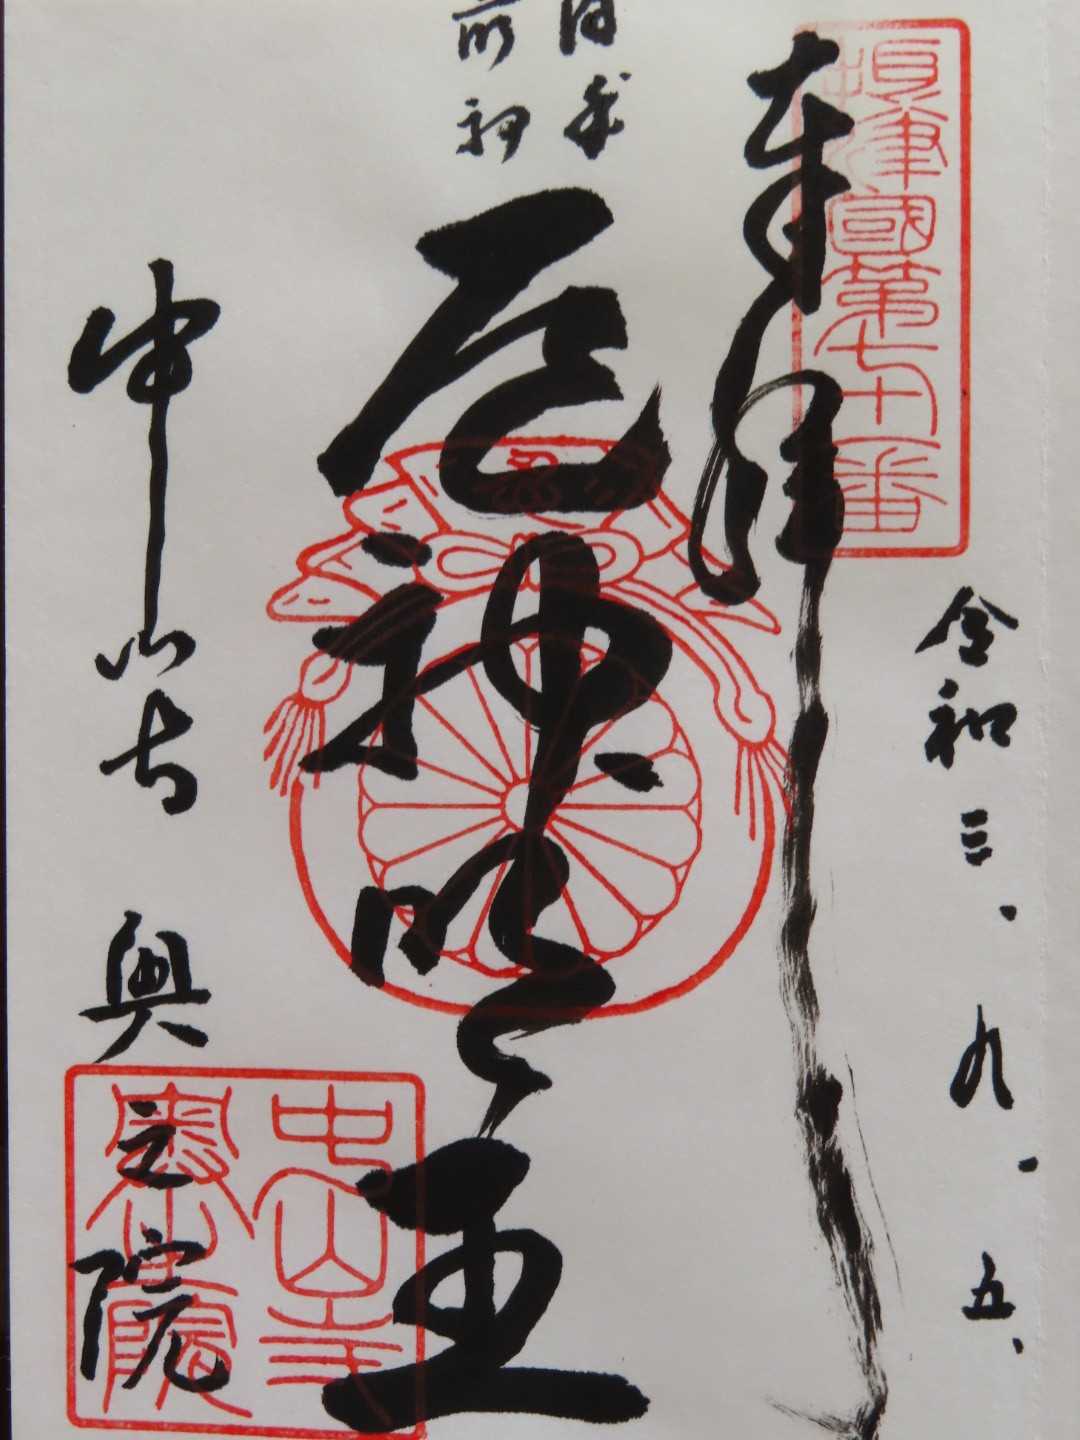 奉拝
津國第七十一番
令和三.九.五.
厄神明王
中山寺 奥之院
中山寺
奥之院